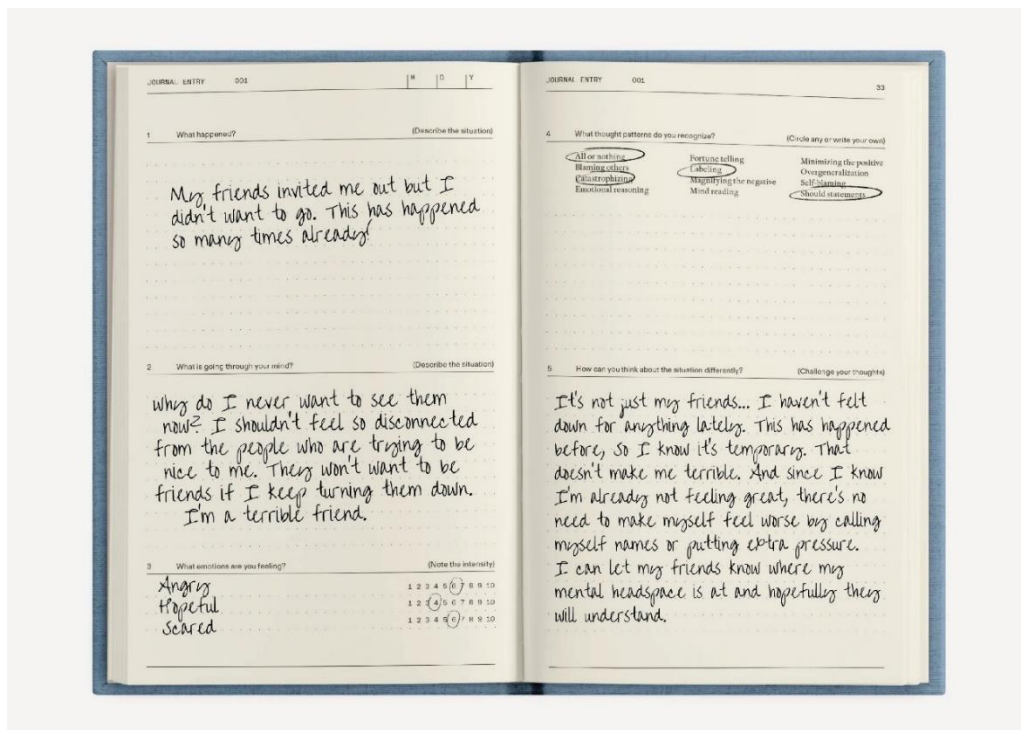 JOURNAL ENTRY 001
M D Y
1 What happened? (Describe the situation)
My friends invited me out but I
didn't want to go. This has happened
so many times already!
2 What is going through your mind? (Describe the situation)
Why do I never want to see them
now? I shouldn't feel so disconnected
from the people who are trying to be
nice to me. They won't want to be
friends if I keep turning them down.
I'm a terrible friend.
3 What emotions are you feeling? (Note the intensity)
Angry 1 2 3 4 5 6 7 8 9 10
Hopeful 1 2 3 4 5 6 7 8 9 10
Scared 1 2 3 4 5 6 7 8 9 10
JOURNAL ENTRY 001 33
4 What thought patterns do you recognize? (Circle any or write your own)
All or nothing Fortune telling Minimizing the positive
Blaming others Labeling Overgeneralization
Catastrophizing Magnifying the negative Self-blaming
Emotional reasoning Mind reading Should statements
5 How can you think about the situation differently? (Challenge your thoughts)
It's not just my friends... I haven't felt
down for anything lately. This has happened
before, so I know it's temporary. That
doesn't make me terrible. And since I know
I'm already not feeling great, there's no
need to make myself feel worse by calling
myself names or putting extra pressure.
I can let my friends know where my
mental headspace is at and hopefully they
will understand.